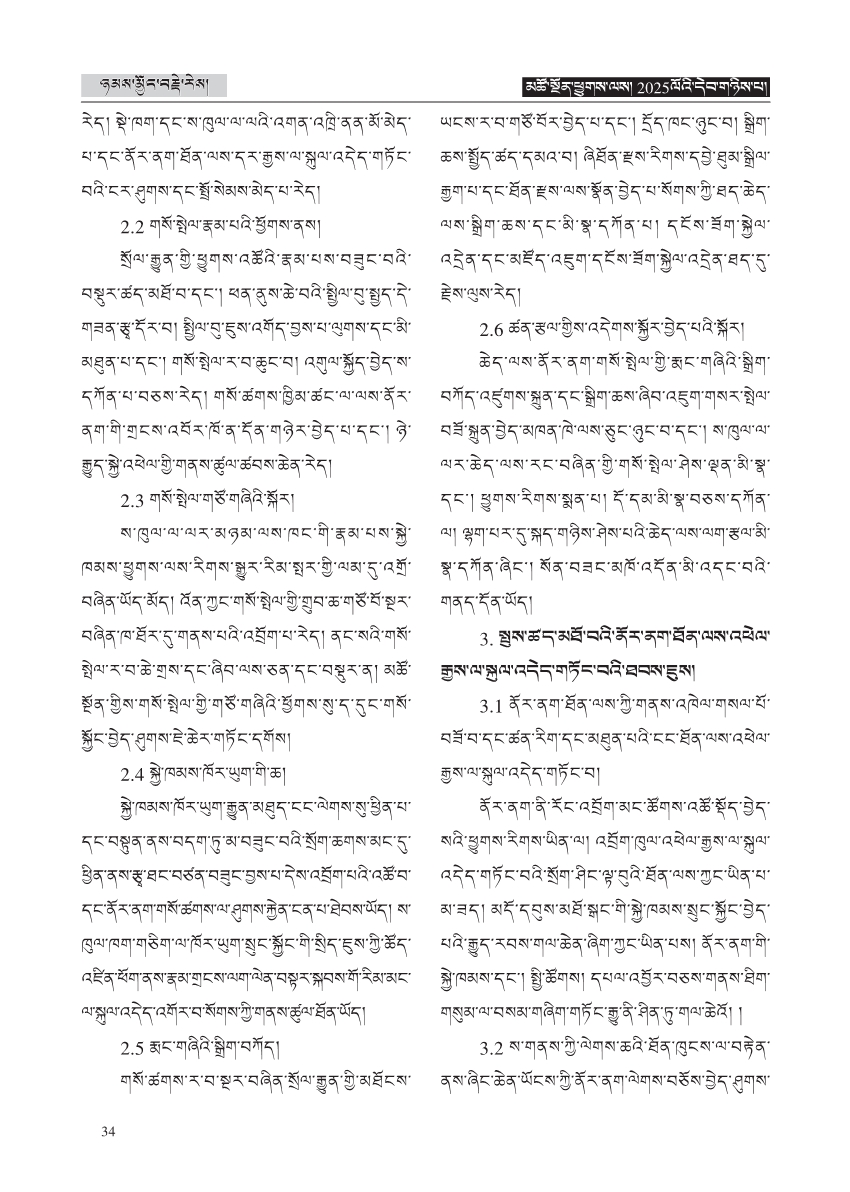 ཉམས་མྱོང་བརྗེ་རེས།
མཚོ་སྔོན་ཕྱུགས་ལས། 2025ལོའི་དེབ་གཉིས་པ།
རེད། སྡེ་ཁག་དང་ས་ཁུལ་ལ་ལའི་འགན་འཁྲི་ནན་མོ་མེད་
པ་དང་ནོར་ནག་ཐོན་ལས་དར་རྒྱས་ལ་སྐུལ་འདེད་གཏོང་
བའི་ངར་ཤུགས་དང་སྤྲོ་སེམས་མེད་པ་རེད།
2.2 གསོ་སྤེལ་རྣམ་པའི་ཕྱོགས་ནས།
སྲོལ་རྒྱུན་གྱི་ཕྱུགས་འཚོའི་རྣམ་པས་བཟུང་བའི་
བསྡུར་ཚད་མཐོ་བ་དང་། ཕན་ནུས་ཆེ་བའི་སྤྱིལ་བུ་སྤྱད་དེ་
གཟན་རྩྭ་དོར་བ། སྤྱིལ་བུ་ཇུས་འགོད་བྱས་པ་ལུགས་དང་མི་
མཐུན་པ་དང་། གསོ་སྤེལ་ར་བ་ཆུང་བ། འགུལ་སྐྱོད་བྱེད་ས་
དཀོན་པ་བཅས་རེད། གསོ་ཚགས་ཁྱིམ་ཚང་ལ་ལས་ནོར་
ནག་གི་གྲངས་འབོར་ཁོ་ན་དོན་གཉེར་བྱེད་པ་དང་། ཉེ་
རྒྱུད་སྐྱེ་འཕེལ་གྱི་གནས་ཚུལ་ཚབས་ཆེན་རེད།
2.3 གསོ་སྤེལ་གཙོ་གཞིའི་སྐོར།
ས་ཁུལ་ལ་ལར་མཉམ་ལས་ཁང་གི་རྣམ་པས་སྐྱེ་
ཁམས་ཕྱུགས་ལས་རིགས་སྒྱུར་རིམ་སྤར་གྱི་ལམ་དུ་འགྲོ་
བཞིན་ཡོད་མོད། འོན་ཀྱང་གསོ་སྤེལ་གྱི་གྲུབ་ཆ་གཙོ་བོ་སྔར་
བཞིན་ཁ་ཐོར་དུ་གནས་པའི་འབྲོག་པ་རེད། ནང་སའི་གསོ་
སྤེལ་ར་བ་ཆེ་གྲས་དང་ཞིབ་ལས་ཅན་དང་བསྡུར་ན། མཚོ་
སྔོན་གྱིས་གསོ་སྤེལ་གྱི་གཙོ་གཞིའི་ཕྱོགས་སུ་ད་དུང་གསོ་
སྐྱོང་བྱེད་ཤུགས་ཇེ་ཆེར་གཏོང་དགོས།
2.4 སྐྱེ་ཁམས་ཁོར་ཡུག་གི་ཆ།
སྐྱེ་ཁམས་ཁོར་ཡུག་རྒྱུན་མཐུད་ངང་ལེགས་སུ་ཕྱིན་པ་
དང་བསྟུན་ནས་བདག་ཏུ་མ་བཟུང་བའི་སྲོག་ཆགས་མང་དུ་
ཕྱིན་ནས་རྩྭ་ཐང་བཙན་བཟུང་བྱས་པ་དེས་འབྲོག་པའི་འཚོ་བ་
དང་ནོར་ནག་གསོ་ཚགས་ལ་ཤུགས་རྐྱེན་ངན་པ་ཐེབས་ཡོད། ས་
ཁུལ་ཁག་གཅིག་ལ་ཁོར་ཡུག་སྲུང་སྐྱོང་གི་སྲིད་ཇུས་ཀྱི་ཚོད་
འཛིན་ཕོག་ནས་རྣམ་གྲངས་ལག་ལེན་བསྟར་སྐབས་གོ་རིམ་མང་
ལ་སྐུལ་འདེད་འགོར་བ་སོགས་ཀྱི་གནས་ཚུལ་ཐོན་ཡོད།
2.5 རྨང་གཞིའི་སྒྲིག་བཀོད།
གསོ་ཚགས་ར་བ་སྔར་བཞིན་སྲོལ་རྒྱུན་གྱི་མཐོངས་
ཡངས་ར་བ་གཙོ་བོར་བྱེད་པ་དང་། དྲོད་ཁང་ཉུང་བ། སྒྲིག་
ཆས་སྤྱོད་ཚད་དམའ་བ། ཞིཐོན་རྫས་རིགས་དབྱེ་ཐུམ་སྒྲིལ་
རྒྱག་པ་དང་ཐོན་རྫས་ལས་སྣོན་བྱེད་པ་སོགས་ཀྱི་ཐད་ཆེད་
ལས་སྒྲིག་ཆས་དང་མི་སྣ་དཀོན་པ། དངོས་ཟོག་སྐྱེལ་
འདྲེན་དང་མཛོད་འཇུག་དངོས་ཟོག་སྐྱེལ་འདྲེན་ཐད་དུ་
རྗེས་ལུས་རེད།
2.6 ཚན་རྩལ་གྱིས་འདེགས་སྐྱོར་བྱེད་པའི་སྐོར།
ཆེད་ལས་ནོར་ནག་གསོ་སྤེལ་གྱི་རྨང་གཞིའི་སྒྲིག་
བཀོད་འཛུགས་སྐྲུན་དང་སྒྲིག་ཆས་ཞིབ་འཇུག་གསར་སྤེལ་
བཟོ་སྐྲུན་བྱེད་མཁན་ཁེ་ལས་ཅུང་ཉུང་བ་དང་། ས་ཁུལ་ལ་
ལར་ཆེད་ལས་རང་བཞིན་གྱི་གསོ་སྤེལ་ཤེས་ལྡན་མི་སྣ་
དང་། ཕྱུགས་རིགས་སྨན་པ། དོ་དམ་མི་སྣ་བཅས་དཀོན་
ལ། ལྷག་པར་དུ་སྐད་གཉིས་ཤེས་པའི་ཆེད་ལས་ལག་རྩལ་མི་
སྣ་དཀོན་ཞིང་། སོན་བཟང་མཁོ་འདོན་མི་འདང་བའི་
གནད་དོན་ཡོད།
3. སྤུས་ཚད་མཐོ་བའི་ནོར་ནག་ཐོན་ལས་འཕེལ་
རྒྱས་ལ་སྐུལ་འདེད་གཏོང་བའི་ཐབས་ཇུས།
3.1 ནོར་ནག་ཐོན་ལས་ཀྱི་གནས་འཁེལ་གསལ་པོ་
བཟོ་བ་དང་ཚན་རིག་དང་མཐུན་པའི་ངང་ཐོན་ལས་འཕེལ་
རྒྱས་ལ་སྐུལ་འདེད་གཏོང་བ།
ནོར་ནག་ནི་རོང་འབྲོག་མང་ཚོགས་འཚོ་སྡོད་བྱེད་
སའི་ཕྱུགས་རིགས་ཡིན་ལ། འབྲོག་ཁུལ་འཕེལ་རྒྱས་ལ་སྐུལ་
འདེད་གཏོང་བའི་སྲོག་ཤིང་ལྟ་བུའི་ཐོན་ལས་ཀྱང་ཡིན་པ་
མ་ཟད། མདོ་དབུས་མཐོ་སྒང་གི་སྐྱེ་ཁམས་སྲུང་སྐྱོང་བྱེད་
པའི་རྒྱུད་རབས་གལ་ཆེན་ཞིག་ཀྱང་ཡིན་པས། ནོར་ནག་གི་
སྐྱེ་ཁམས་དང་། སྤྱི་ཚོགས། དཔལ་འབྱོར་བཅས་གནས་ཐིག་
གསུམ་ལ་བསམ་གཞིག་གཏོང་རྒྱུ་ནི་ཤིན་ཏུ་གལ་ཆེའོ། །
3.2 ས་གནས་ཀྱི་ལེགས་ཆའི་ཐོན་ཁུངས་ལ་བརྟེན་
ནས་ཞིང་ཆེན་ཡོངས་ཀྱི་ནོར་ནག་ལེགས་བཅོས་བྱེད་ཤུགས་
34